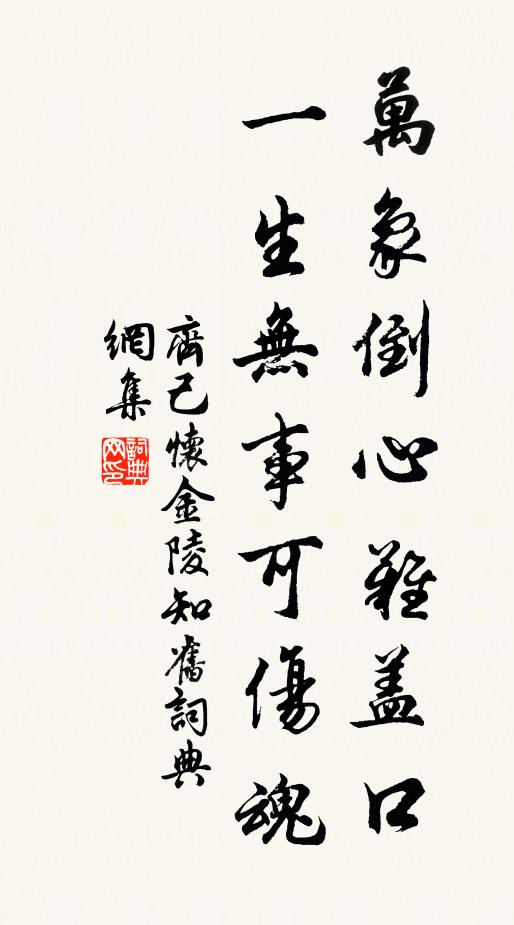 萬象倒心難蓋口
一生無事可傷魂
齊己懷金陵知舊詞典
網集
詞典網印